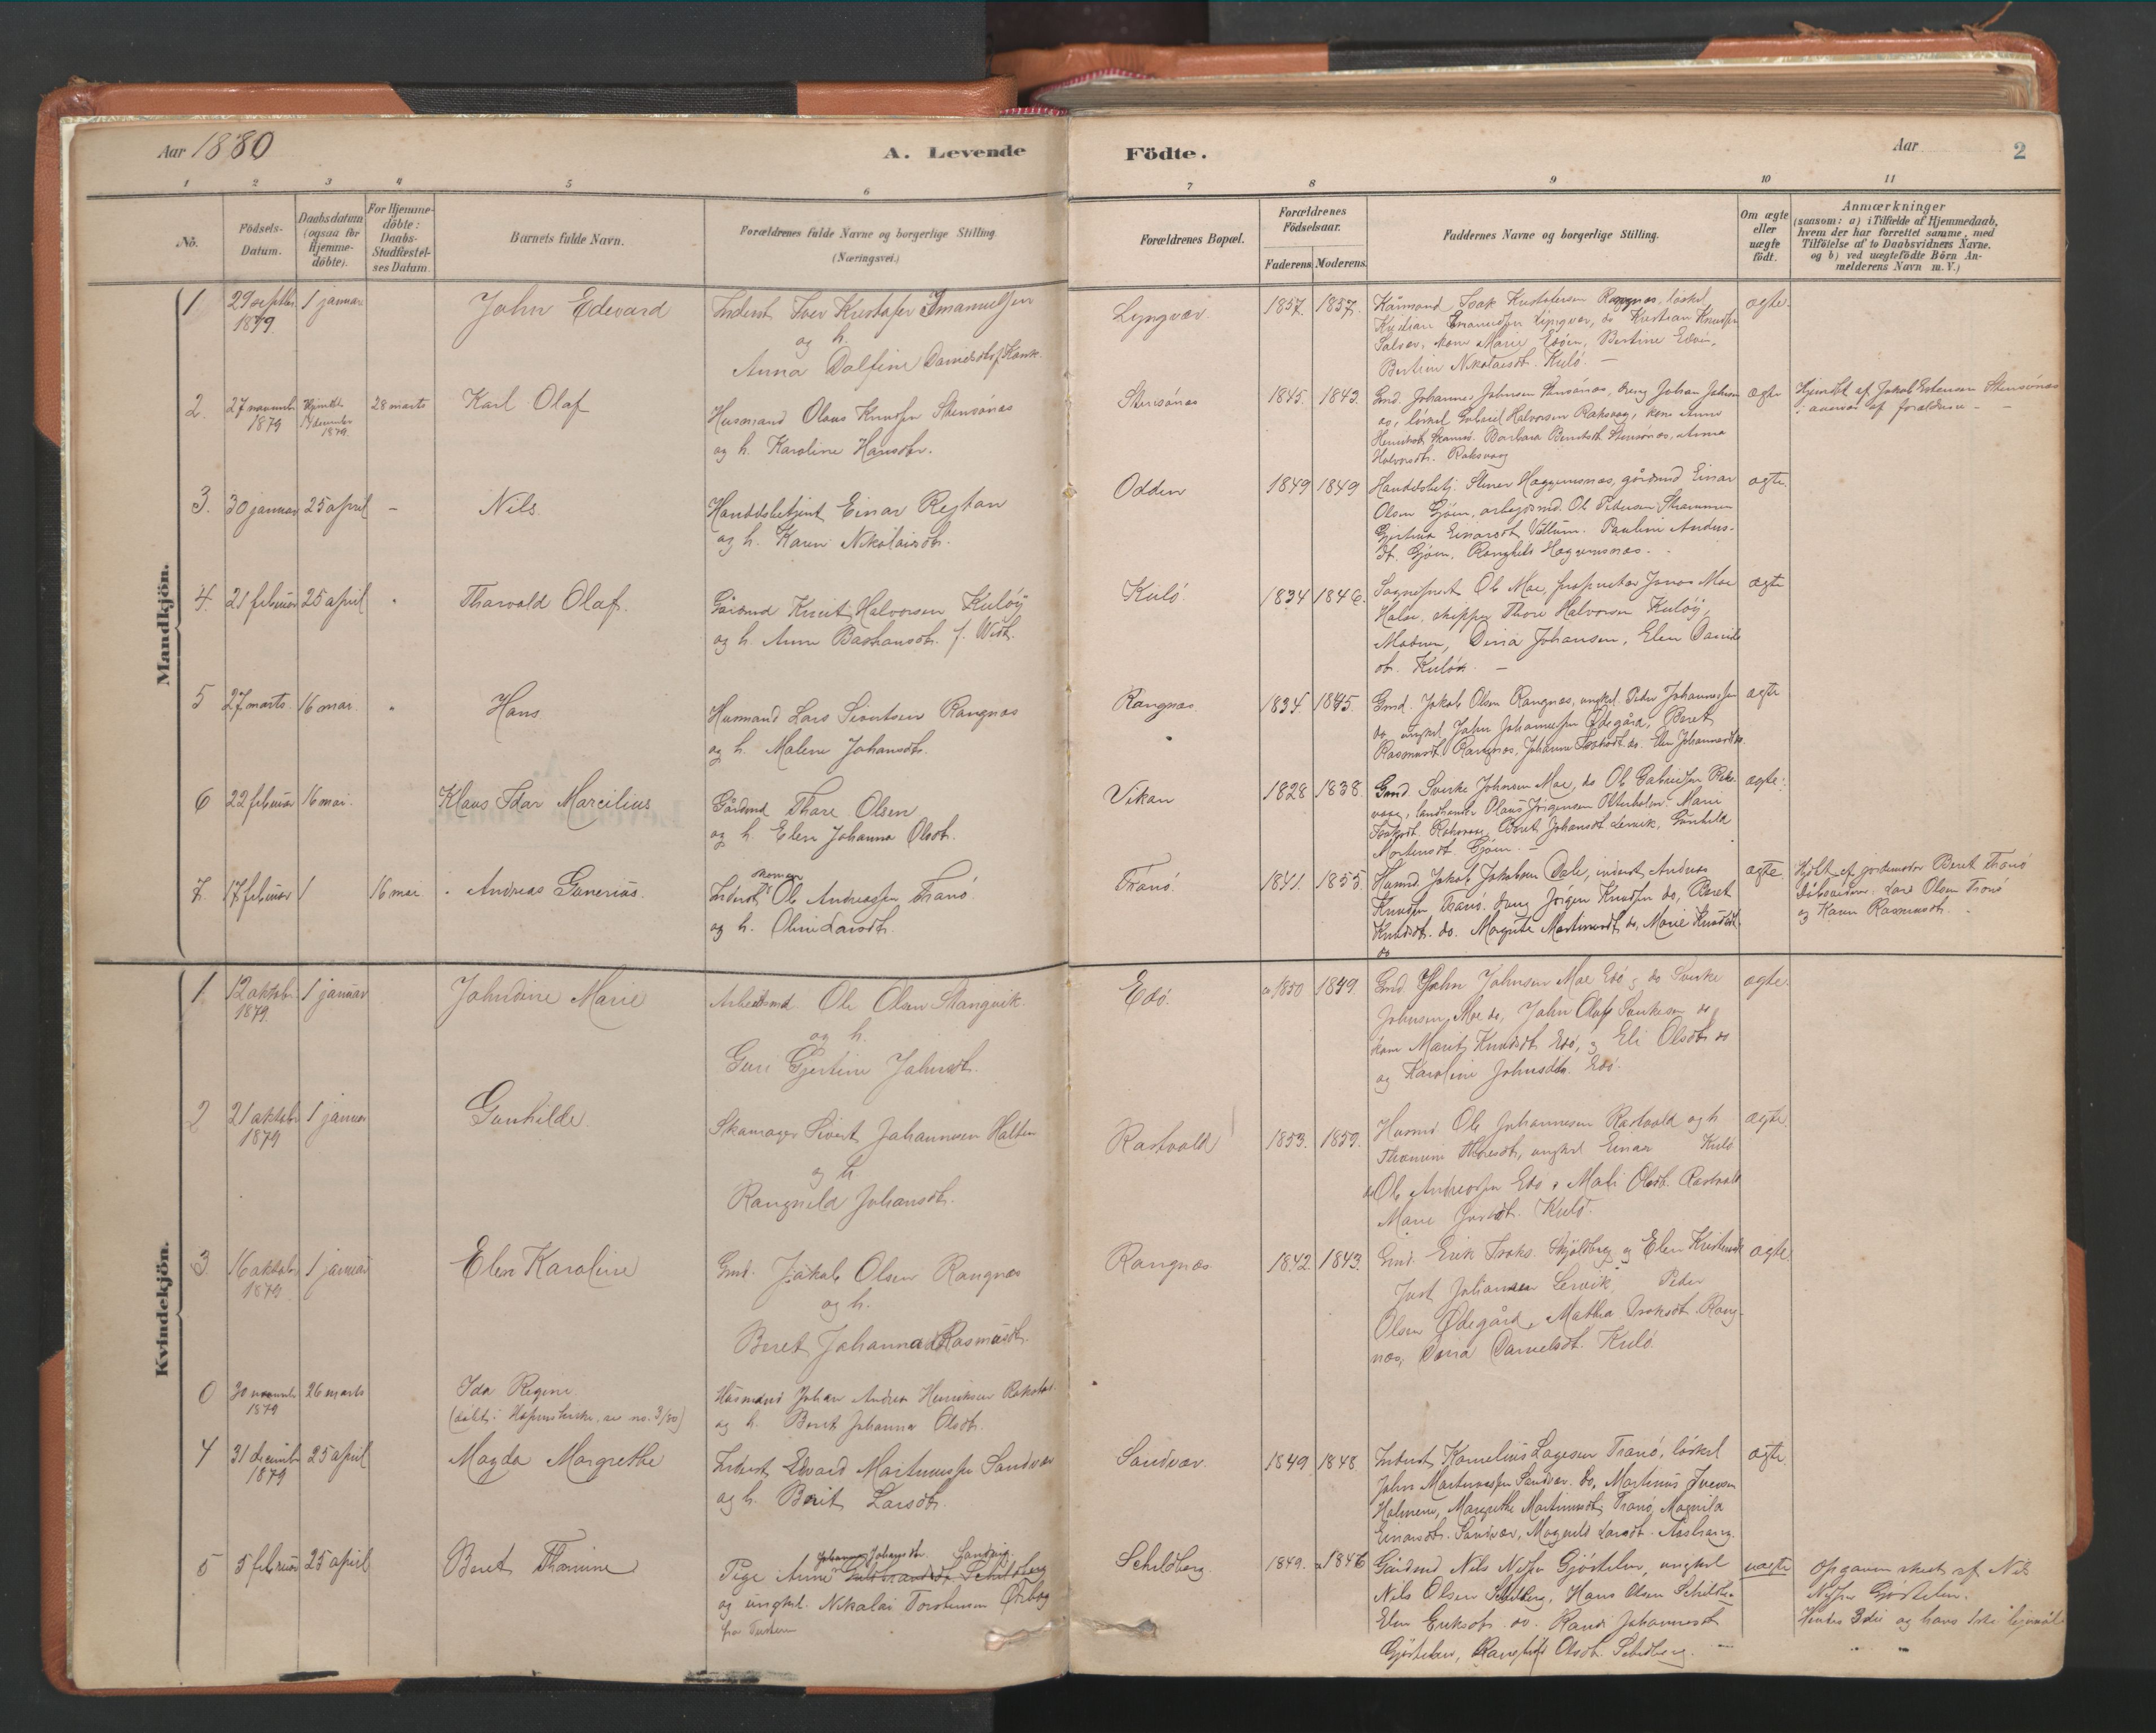 Aar 1880
A. Levende
Födte.
Aar
2
1 2 3 4 5 6 7 8 9 10 11
Nô.
Födsels-
Datum.
Daabsdatum
(ogsaa for
Hjemme-
döbte).
For Hjemme-
döbte:
Daabs-
Stadfæstel-
ses Datum.
Barnets fulde Navn.
Forældrenes fulde Navne og borgerlige Stilling
(Næringsvei.)
Forældrenes Bopæl.
Forældrenes
Födselsaar.
Faderens Moderens
Faddernes Navne og borgerlige Stilling.
Om ægte
eller
uægte
födt.
Anmærkninger
(saasom: a) i Tilfælde af Hjemmedaab,
hvem der har forrettet samme, med
Tilföielse af to Daabsvidners Navne,
og b) ved uægtefödte Börn An-
melderens Navn m.V.)
Mandkjön.
1. 29 septbr 1879. 1 januar
John Edevard
Inderst Iver Kristofer Emanuelsen
og h.
Anna Dolfine Danielsdt
Lyngvær.
1857. 1857.
Bertine Nikolaisdt. Kulö. —
ægte.
2. 27 novembr 1879 28 marts
Karl Olaf
Husmand Olaus Knudsen Stensönes
og h. Karoline Hansdtr.
Stensönes
1845. 1843.
Gmd. Johannes Johnsen Stensönes, Johan Johnsen
do, löskl Gabriel Halvorsen Raksvaag, kone Anne
Barbara Bendtsdt Stensönes, Anna
Halvorsdt. Raksvaag
ægte
Hjemdbt af Jakob Estensen Stensönes
i nærvær af forældrene —
3. 30 januar 25 april –
Nils.
Handelsbetjent Einar Reftan
og h. Karen Nikolaisdtr.
Odden
1849 1849
Handelsbetj. Stener Haggemsnes, gårdmd Einar
Olsen Gjöen, arbeidsmd. Ole Pedersen Strømmen
Einarsdt Vullum. Pauline Anders-
dt. Gjöen, Ranghild Haggemsnes.
ægte.
4. 21 februar 25 april "
Tharvald Olaf.
Gårmd Knut Halvorsen Kulöy
og h. Anne Bashansdt. f. Wirth
Kulö.
1834 1846.
Sogneprest Ole Moe, proprietær Jonas Moe
Halse, skipper Thore Halvorsen Kulöy,
Moderen, Dina Johansen, Elen Daniels
dt. Kulöy. —
ægte
5 27 marts. 16 mai. "
Hans
Husmand Lars Sivertsen Rangnes
og h. Malene Johansdtr.
Rangnes.
1834. 1845.
Gmd. Jakob Olsen Rangnes, ungkl. Peder Johannessen
do, ungkl. John Johannessen Ødegård, Beret
Rasmusdt. Rangnes, Johanna Isaksdt do. Elen Johannesdt do.
ægte
6 22 februar 16 mai.
Klaus Idar Marcilius
Gårdmd Thore Olsen
og h. Elen Johanna Olsdt.
Vikan
1828 1838.
Gmd. Sverke Johnsen Moe, do Ole Gabrielsen Raks-
vaag, landhandler Olaus Jörgensen Otterholm. Marie
Isaksdt. Raksvaag, Beret Johansdt Leervik, Gunhild
Mortensdt Gjöen. —
ægte.
7. 17 februar 1 16 mai.
Andreas Gunerius.
Inderst Ole Andreassen Tranö.
og h. Oline Larsdt.
Tranö.
1841. 1855.
Husmd. Jakob Jakobsen Dale, inderst Andreas
Knudsen Tranö. dreng Jörgen Knudsen do, Beret
Knudsdt. do. Margrete Martinusdt do, Marie Knudsdt
do
ægte
Hjdbt af jordemoder Beret Tranö
dåbsvidner: Lars Olsen Tranö
og Karen Rasmusdt.
Kvindekjön.
1. 12 oktobr. 1879. 1 januar
Johndine Marie
Arbeidsmd. Ole Olsen Skangvik.
og h.
Guri Gjertine Johnsdt.
Edö.
1850 1849.
Gmd. John Johnsen Moe Edö, do Sverke
Johnsen Moe do, John Olaf Sverkesen do,
kone Marit Knudsdt Edö, Eli Olsdt do
og Karoline Johnsdtr. Edö.
ægte.
2 21 oktobr 1879 1 januar
Gunhilde.
Skomager Sivert Johannesen Holten
og h
Rangnild Johansdt.
Rastvold
1853. 1859.
Husmd. Ole Johannesen Rastvold og h
Thoresdt, ungkl Einar Kulö
do Ole Andreassen Edö, Mali Olsdt. Rastvold
Marie Kulö.
ægte.
3 16 oktobr 1879. 1 januar
Elen Karoline
Gmd. Jakob Olsen Rangnes
og h.
Beret Johanna Rasmusdt.
Rangnes
1842. 1843.
Gmd. Erik Isaks. Skjöldberg, Elen Kristensdt
Just Johansen Lervik, Peder
Olsen Ødegård, Mathea Isaksdt. Rang-
nes, Dorea Danielsdt. Kulö.
ægte.
0 30 novembr 1879 26 marts
Ida Regine
(döbt i Hopenskirke, se no. 3/80)
Husmand Johan Andreas Henriksen
og h. Beret Johanna Olsdtr.
4 31 decembr 1879 25 april
Magda Margrethe
Inderst Edvard Martinussen Sandvær
og h. Berit Larsdtr.
Sandvær.
1849. 1848.
Inderst Kornelius Lagesen Tranö, löskl
John Martinussen Sandvær. do, Martinus Iversen
Holmene, Margrethe Martinusdt Tranö, Magnila
Einarsdtr. Sandvær, Magnild Larsdt.
ægte.
5 5 februar 25 april
Beret Thomine
Johansdtr. Sandvig.
Pige Anne Schildberg
og ungkl. Nikolai Torstensen Ørbog
fra Tusteren
Schildberg.
1849. 1846
Gårdmd Nils Gjöstelen, ungkl
Nils Olsen Schildberg, Hans Olsen Schildberg
Elen Eriksdt. do. Randi Johannesdt
Gjöstelen, Rangnild Olsdt. Schildberg. —
uægte
Opgaven skeet af Nils
Gjöstelen.
Hendes 3die og hans 1ste leiermål